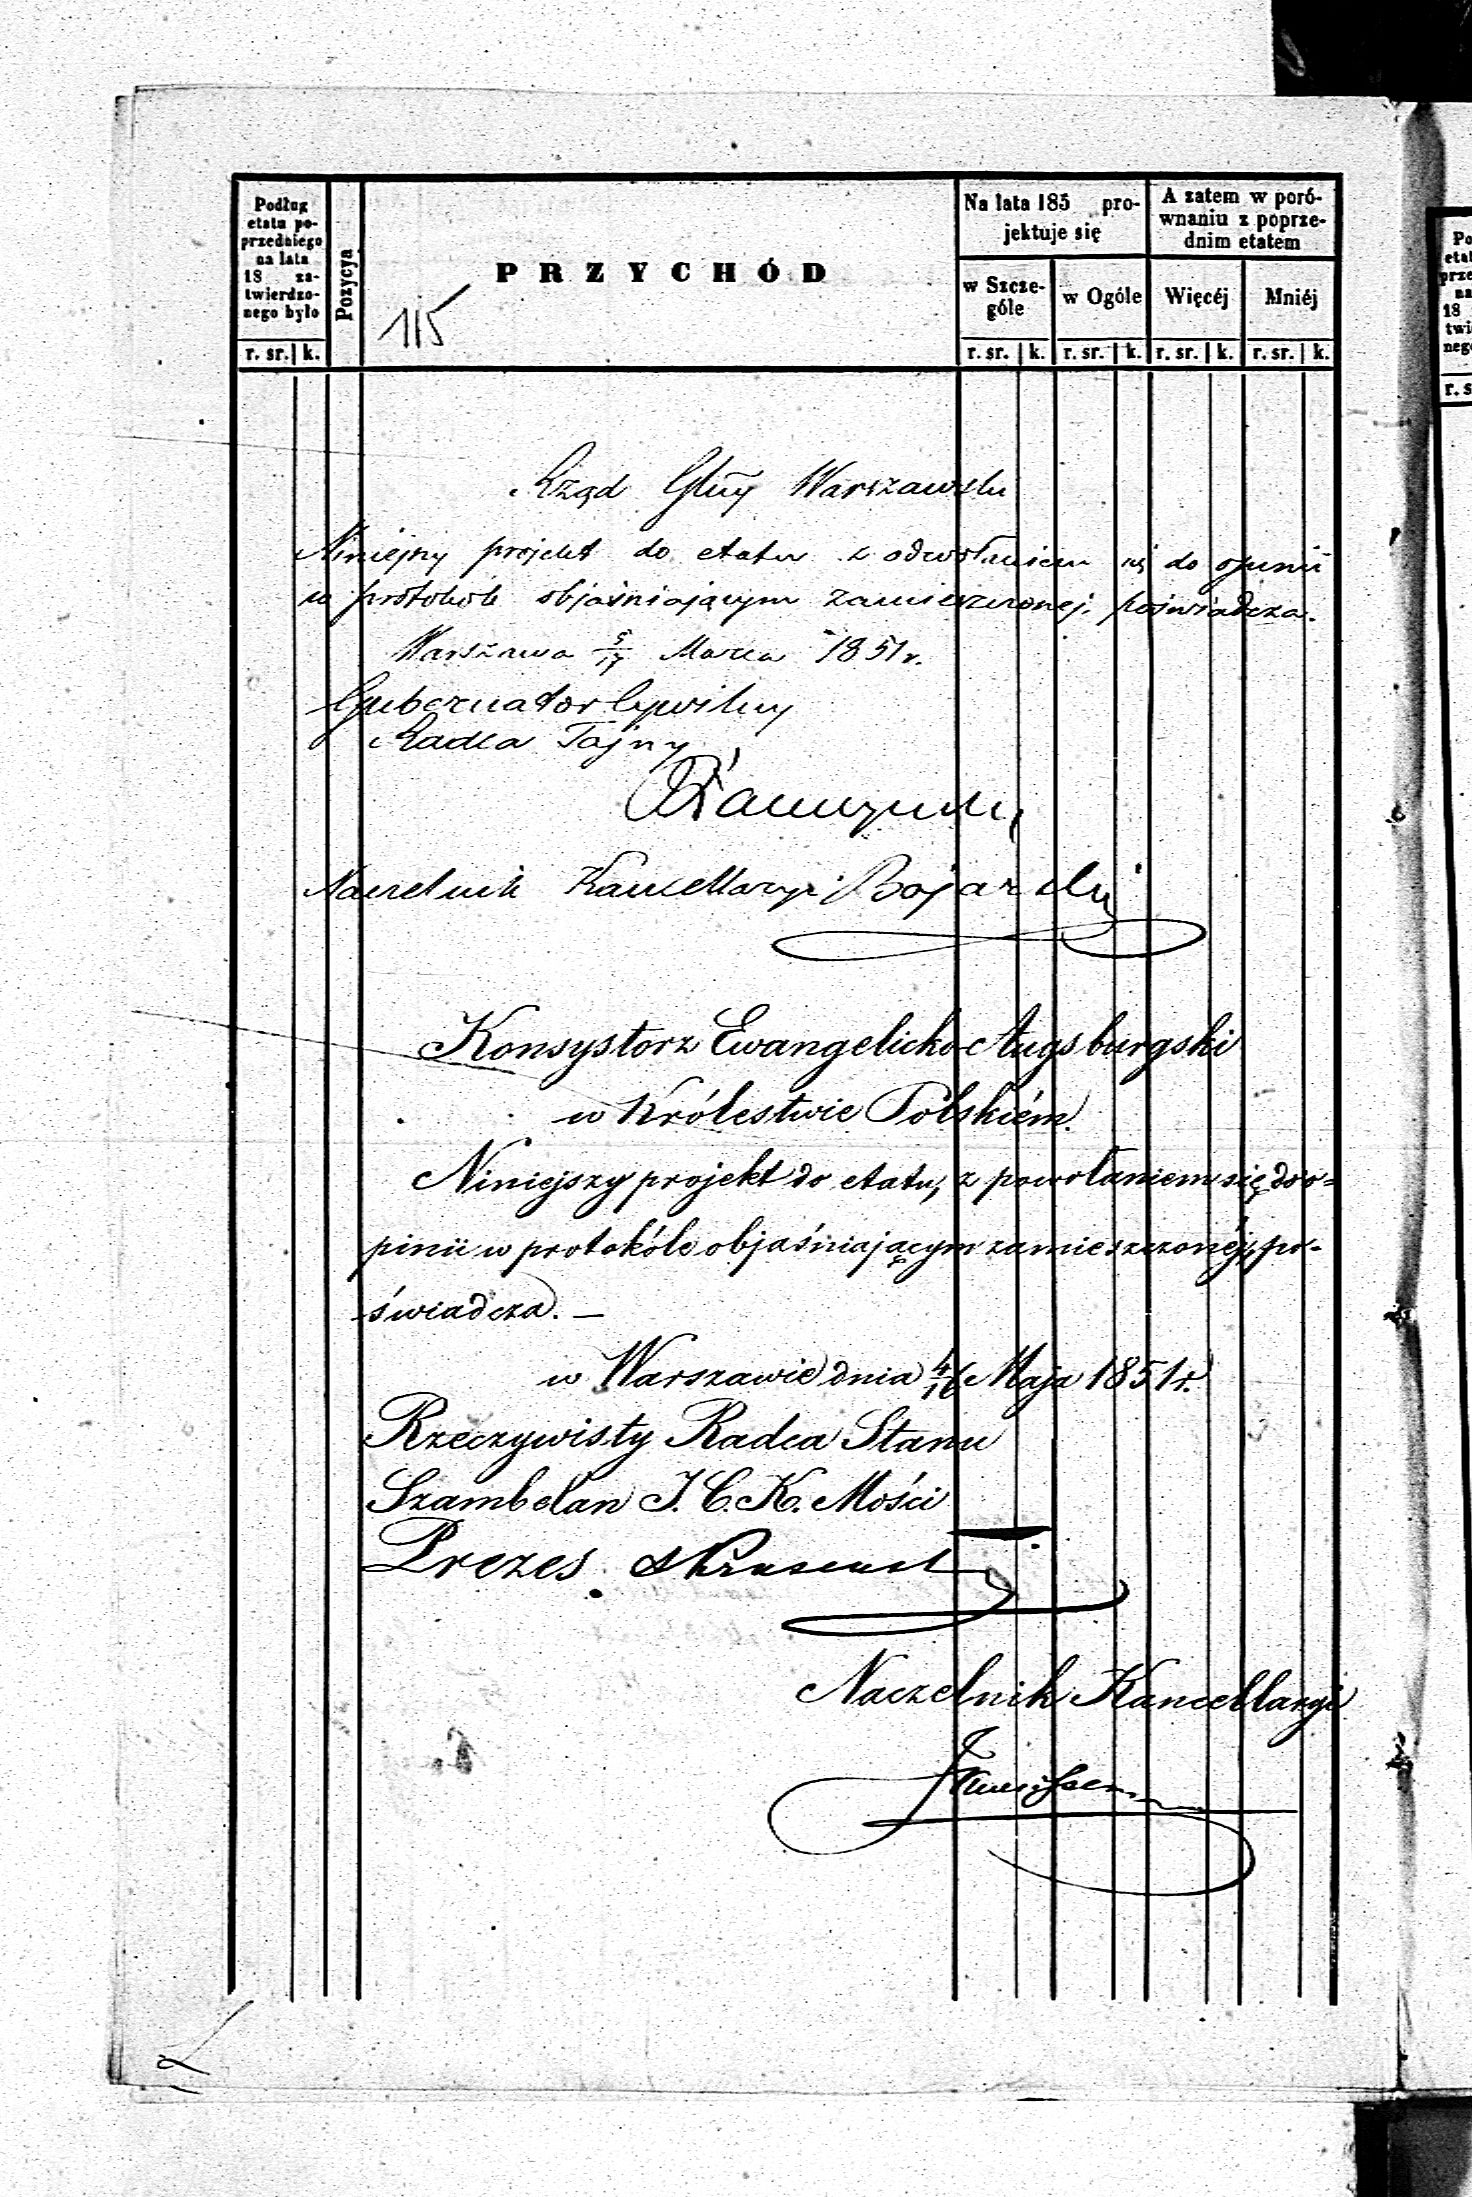 Podług
etatu po-
przedniego
na lata
18 za-
twierdzo-
nego było
Pozycya
PRZYCHÓD
Na lata 185 pro-
jektuje się
A zatem w poró-
wnaniu z poprze-
dnim etatem
w Szcze-
góle
w Ogóle
Więcéj
Mniéj
r. sr. k.
r. sr. k. r. sr. k. r. sr. k. r. sr. k.
115
Rząd Głny Warszawski
Niniejszy projekt do etatu z odwołaniem się do opinii
w protokole objaśniającym zamieszczonej, poświadcza.
Warszawa 5/17 Marca 1851 r.
Gubernator Cywilny
Radca Tajny
Naczelnik Kancellaryi Bojarski
Konsystorz Ewangelicko-Augsburgski
w Królestwie Polskiém.
Niniejszy projekt do etatu, z powołaniem się do o=
pinii w protokóle objaśniającym zamieszczonéj, po-
świadcza. —
w Warszawie dnia 4/16 Maja 1851 r.
Rzeczywisty Radca Stanu
Szambelan J. C. K. Mości
Prezes
Naczelnik Kancellaryi